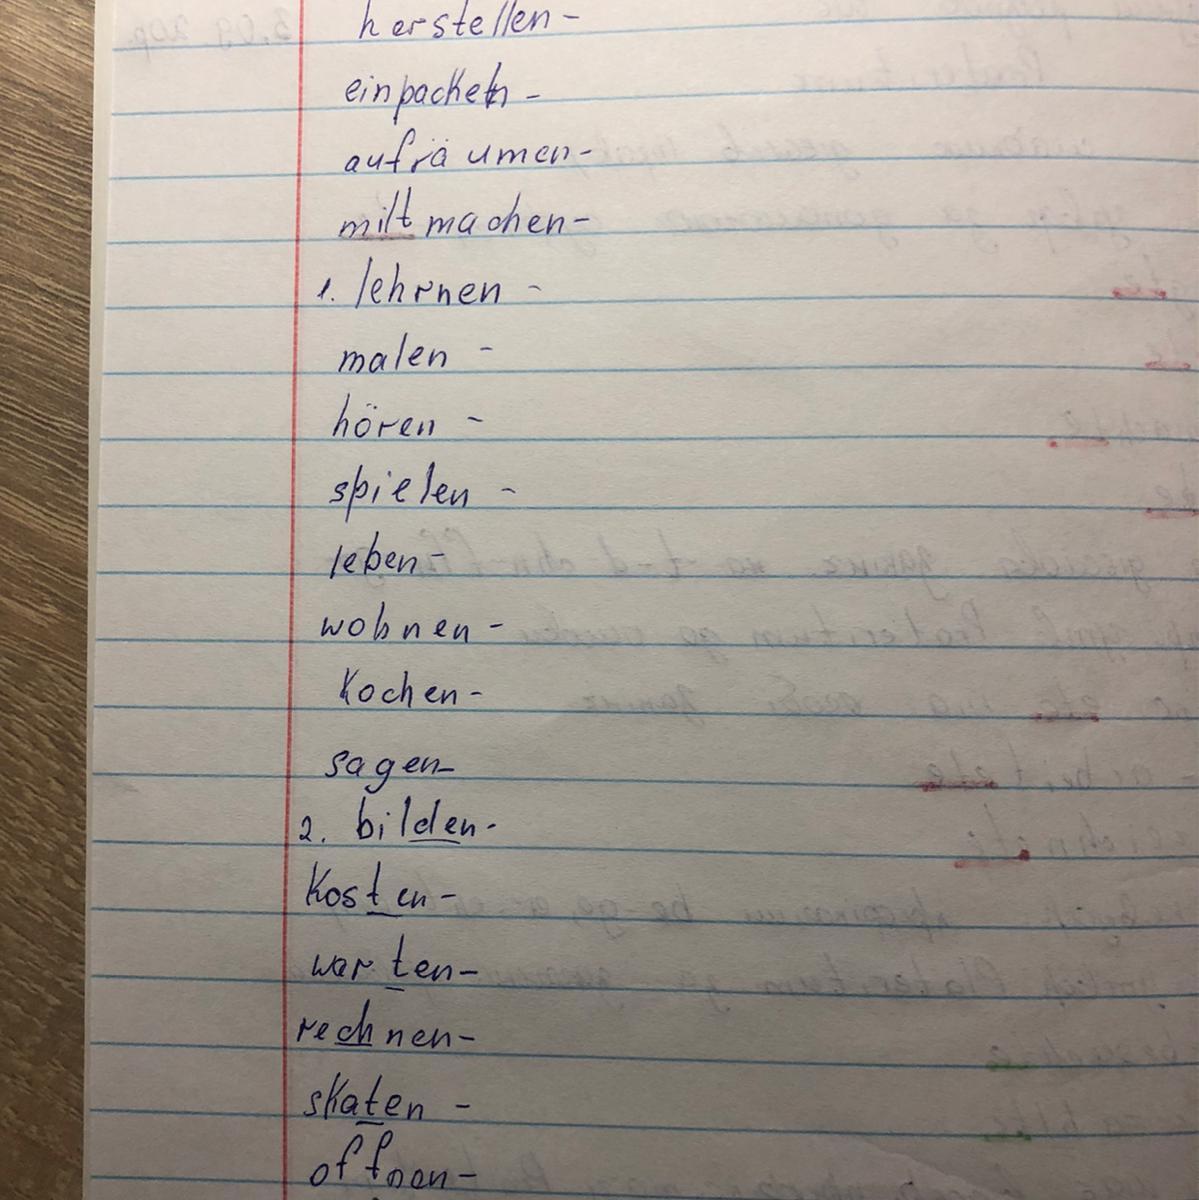 herstellen -
einpacken -
aufräumen -
mitmachen -
1. lehrnen -
malen -
hören -
spielen -
leben -
wohnen -
kochen -
sagen -
2. bilden -
kosten -
warten -
rechnen -
skaten -
offnen -